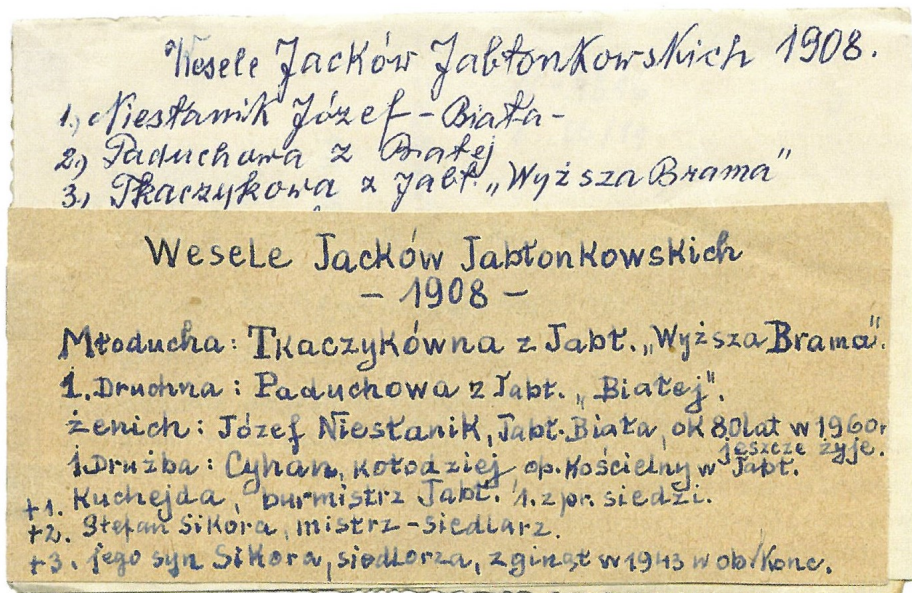 Wesele Jacków Jabłonkowskich 1908.
1, Niesłanik Józef - Biała -
2, Paduchowa z Białej
3, Tkaczykowa z Jabł. „Wyższa Brama"
Wesele Jacków Jabłonkowskich
- 1908 -
Młoducha: Tkaczykówna z Jabł. „Wyższa Brama".
1. Druchna: Paduchowa z Jabł. „Białej".
żenich: Józef Niesłanik, Jabł-Biała, ok 80 lat w 1960r
jeszcze żyje.
1. Drużba: Cyhan, kołodziej op. Kościelny w Jabł.
+1. Kuchejda, burmistrz Jabł. 1. z pr. siedzi.
+2. Stefan Sikora, mistrz-siedlarz.
+3. jego syn Sikora, siedlorza, zginął w 1943 w ob. Konc.